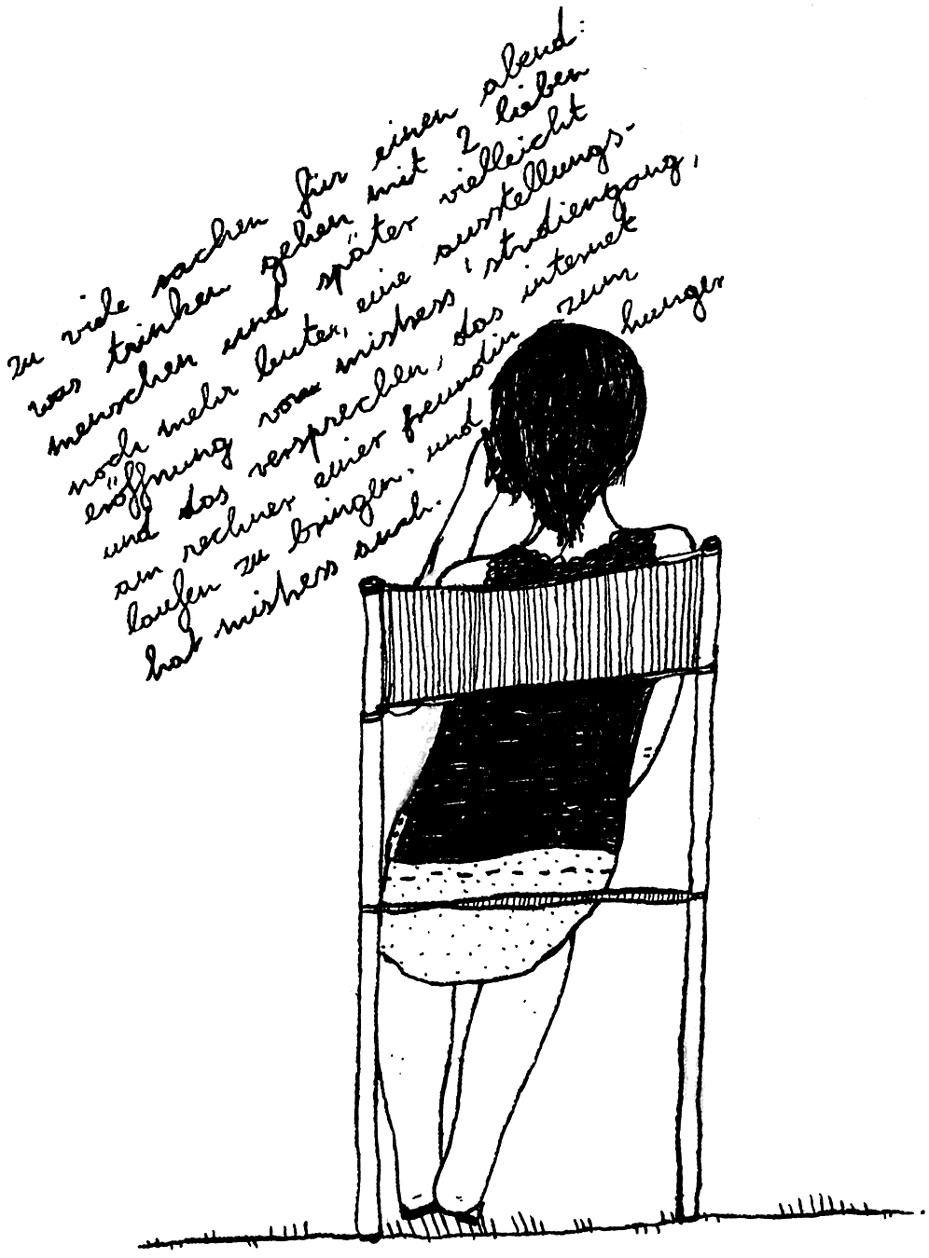 zu viele sachen für einen abend:
was trinken gehen mit 2 lieben
menschen und später vielleicht
noch mehr leuten, eine ausstellungs-
eröffnung von mistress' studiengang,
und das versprechen, das internet
am rechner einer freundin zum
laufen zu bringen. und hunger
hat mistress auch.